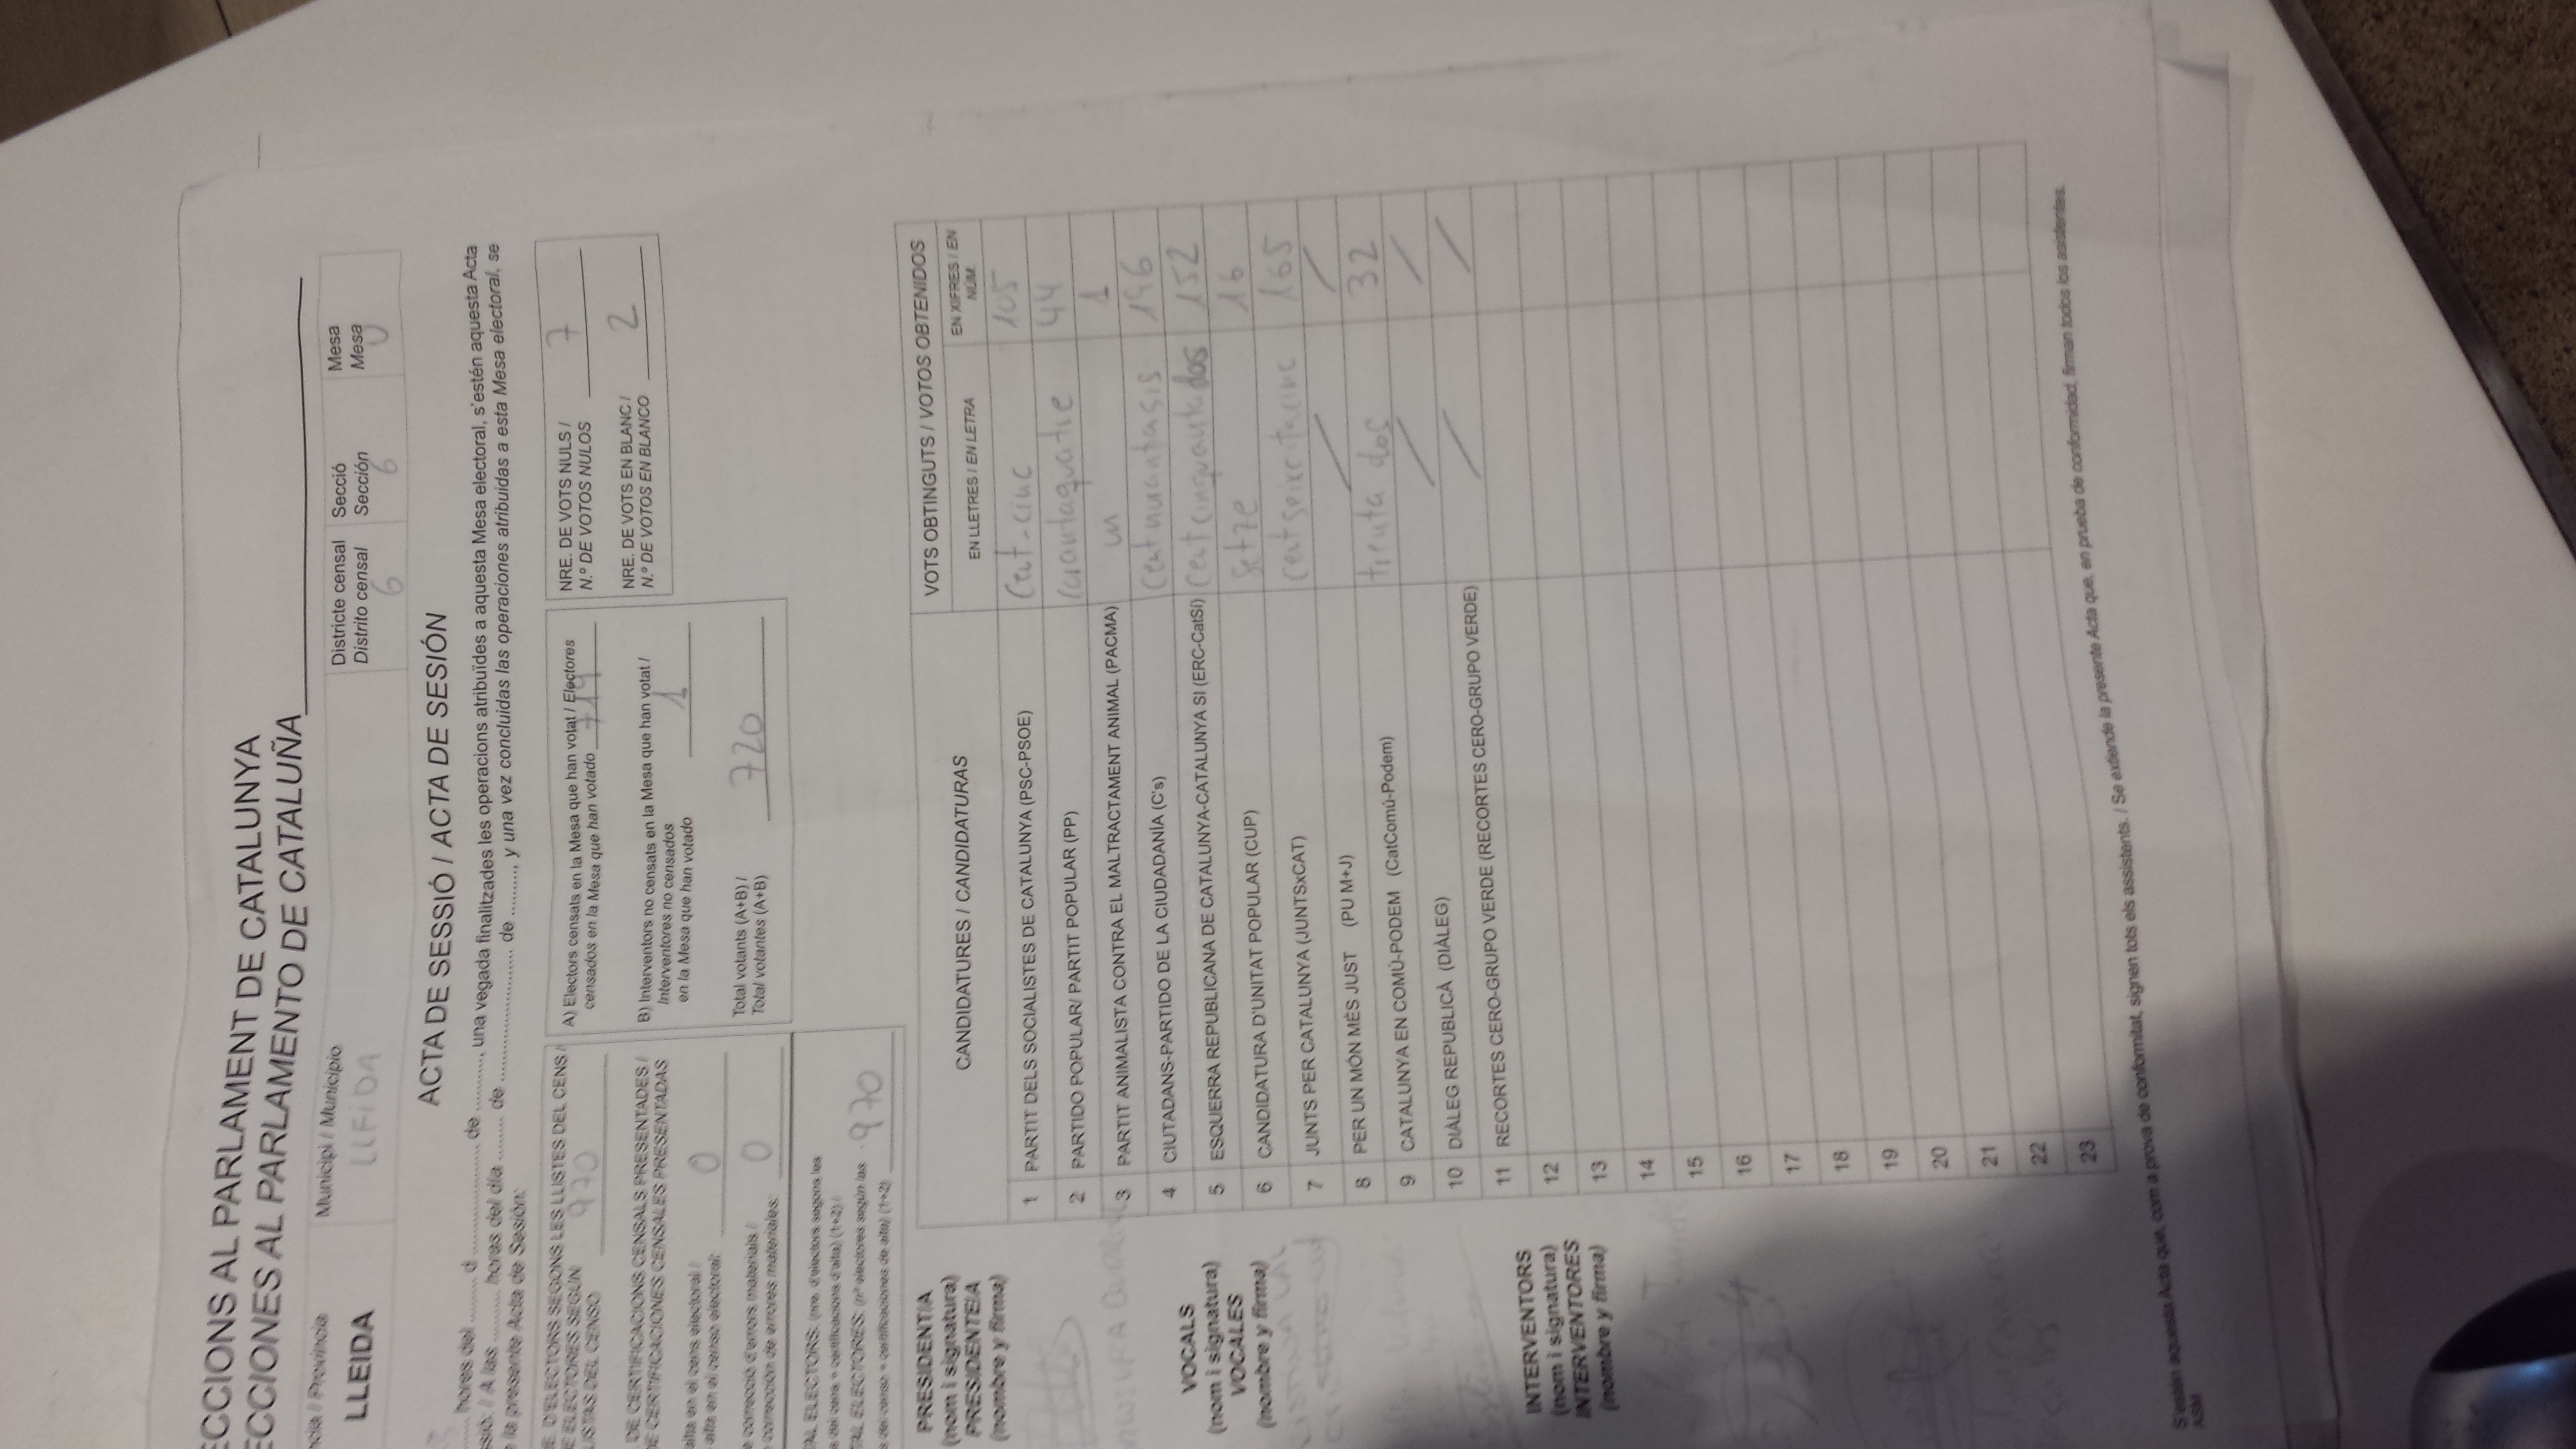 ECCIONS AL PARLAMENT DE CATALUNYA
ECCIONES AL PARLAMENTO DE CATALUÑA
ncia / Provincia
LLEIDA
Municipi / Municipio
LLEIDA
Districte censal
Distrito censal
6
Secció
Sección
6
Mesa
Mesa
U
ACTA DE SESSIÓ / ACTA DE SESIÓN
hores del ........ d .................... de .........., una vegada finalitzades les operacions atribuïdes a aquesta Mesa electoral, s'estén aquesta Acta
ssió: / A las ......... horas del día ........ de ......................... de ........., y una vez concluidas las operaciones atribuidas a esta Mesa electoral, se
la presente Acta de Sesión:
E. D'ELECTORS SEGONS LES LLISTES DEL CENS /
E ELECTORES SEGÚN
LISTAS DEL CENSO 970
DE CERTIFICACIONS CENSALS PRESENTADES /
DE CERTIFICACIONES CENSALES PRESENTADAS
alta en el cens electoral /
alta en el censo electoral: 0
e correcció d'errors materials /
corrección de errores materiales: 0
TAL ELECTORS: (nre. d'electors segons les
s del cens + certificacions d'alta) (1+2) /
TAL ELECTORES: (nº electores según las
s del censo + certificaciones de alta) (1+2) 970
A) Electors censats en la Mesa que han votat / Electores
censados en la Mesa que han votado 719
B) Interventors no censats en la Mesa que han votat /
Interventores no censados
en la Mesa que han votado 1
Total votants (A+B) /
Total votantes (A+B) 720
NRE. DE VOTS NULS /
N.º DE VOTOS NULOS 7
NRE. DE VOTS EN BLANC /
N.º DE VOTOS EN BLANCO 2
PRESIDENT/A
(nom i signatura)
PRESIDENTE/A
(nombre y firma)
VOCALS
(nom i signatura)
VOCALES
(nombre y firma)
INTERVENTORS
(nom i signatura)
INTERVENTORES
(nombre y firma)
CANDIDATURES / CANDIDATURAS
VOTS OBTINGUTS / VOTOS OBTENIDOS
EN LLETRES / EN LETRA
EN XIFRES / EN
NÚM.
1 PARTIT DELS SOCIALISTES DE CATALUNYA (PSC-PSOE) Cent-cinc 105
2 PARTIDO POPULAR/ PARTIT POPULAR (PP) 44
3 PARTIT ANIMALISTA CONTRA EL MALTRACTAMENT ANIMAL (PACMA) un 1
4 CIUTADANS-PARTIDO DE LA CIUDADANÍA (C's) cent nuantasis 196
5 ESQUERRA REPUBLICANA DE CATALUNYA-CATALUNYA SI (ERC-CatSí) cent cinquanta dos 152
6 CANDIDATURA D'UNITAT POPULAR (CUP) setze 16
7 JUNTS PER CATALUNYA (JUNTSxCAT) 165
8 PER UN MÓN MÉS JUST (PU M+J) / /
9 CATALUNYA EN COMÚ-PODEM (CatComú-Podem) trenta dos 32
10 DIÀLEG REPUBLICÀ (DIÀLEG) / /
11 RECORTES CERO-GRUPO VERDE (RECORTES CERO-GRUPO VERDE) / /
12
13
14
15
16
17
18
19
20
21
22
23
S'estén aquesta Acta que, com a prova de conformitat, signen tots els assistents. / Se extiende la presente Acta que, en prueba de conformidad, firman todos los asistentes.
ASM